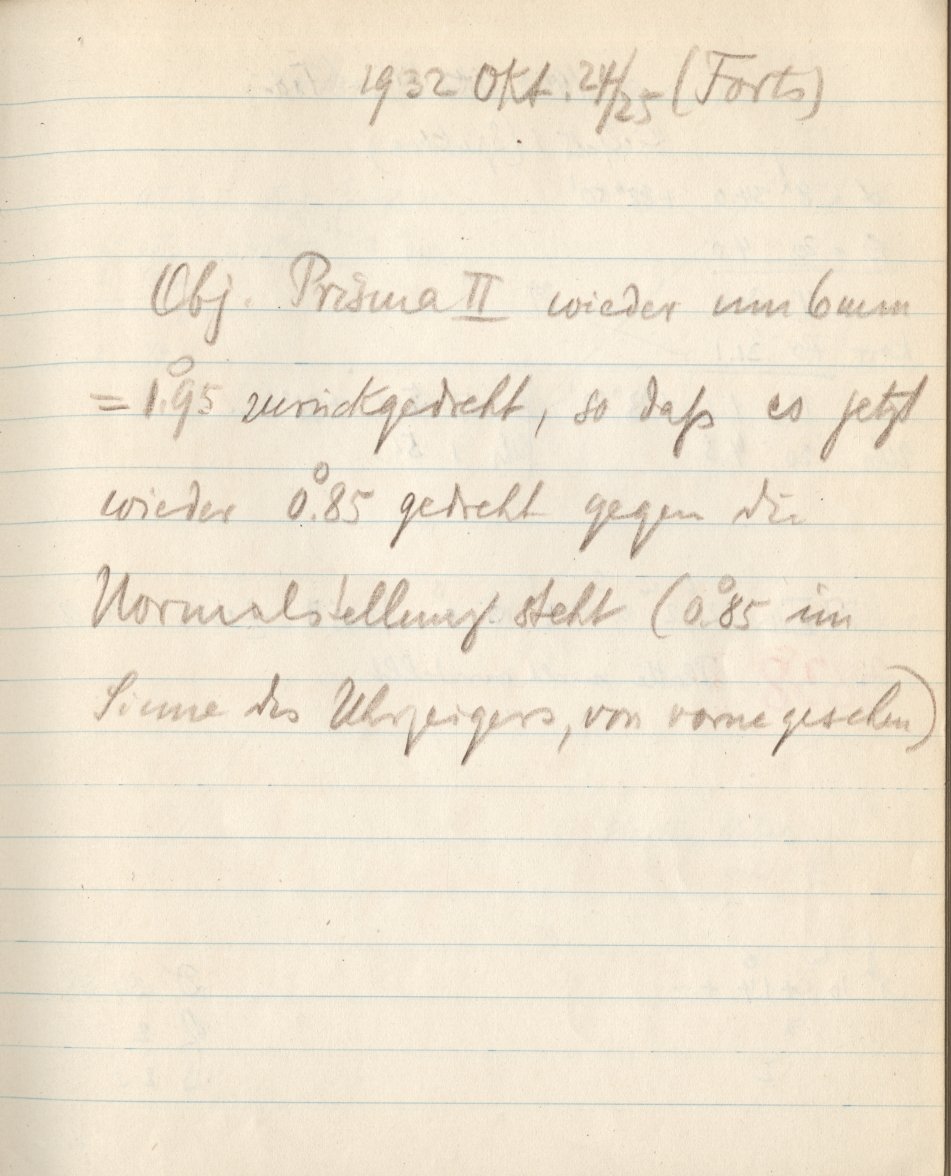 1932 Okt. 24/25 (Forts)
Obj. Prisma II wieder um 6 mm
= 1°.95 zurückgedreht, so daß es jetzt
wieder 0°.85 gedreht gegen die
Normalstellung steht (0°.85 im
Sinne des Uhrzeigers, von vorne gesehen)